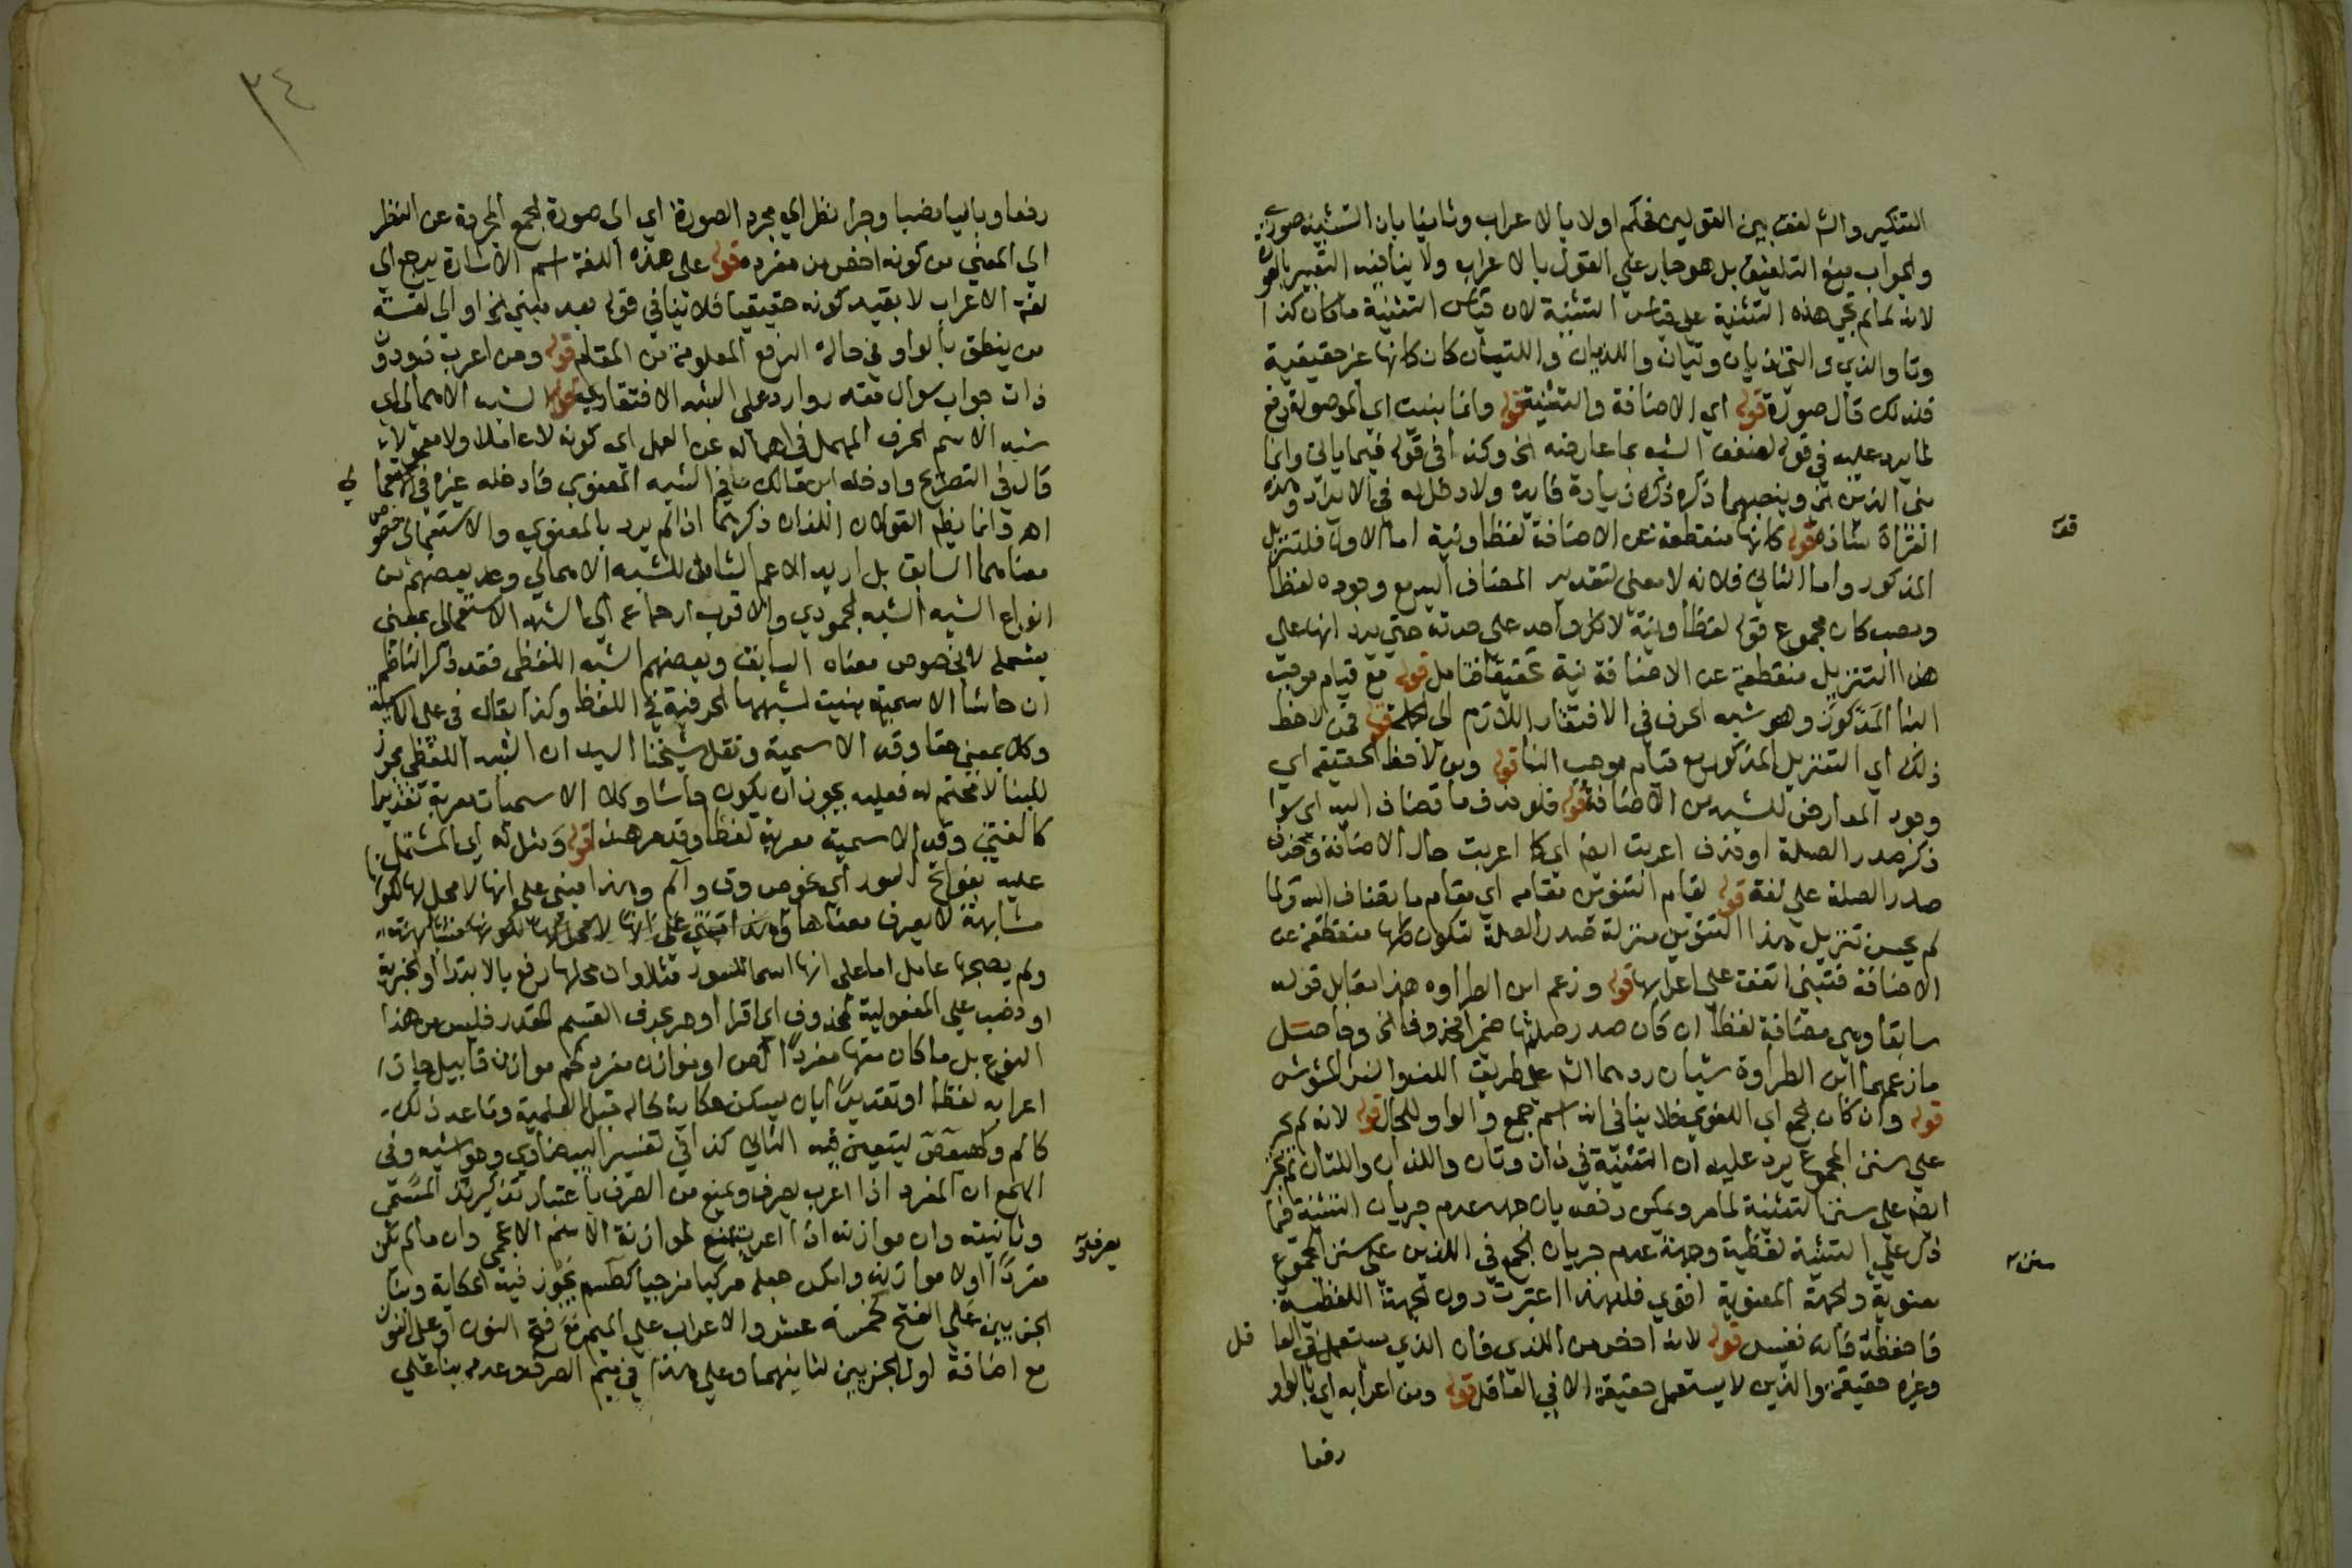 التنكير والشم لفق بين القولين فحكم اولا بالاعراب وثانيا بان التثنية صورية
والجواب منع التلفيق بل هو جار على القول بالاعراب ولا ينافيه التعبير بالصورة
لانه لما لم تجي هذه التثنية على قياس التثنية لان قياس التثنية ما كان كذا
وتا والذي والتي ذيان وتيان واللذيان واللتيان كان كانها غير حقيقية
فلذلك قال صورة قوله اي الاضافة والتثنية قوله وانما بنيت اي الموصولة دفع
لما يرد عليه في قوله لضعف الشبه بما عارضه الخ وكذا في قوله فيما ياتي وانما
بني الذين الخ وبنصبهما ذكره ذكره زيادة فايدة ولا دخل له في الايراد وهذه
القراة شاذة قوله كانها منقطعة عن الاضافة لفظا ونية اما الاول فلتنزيل
المذكور واما الثاني فلانه لا معنى لتقدير المضاف اليه مع وجوده لفظا
ونصب كان مجموع قوله لفظا ونية لا كل واحد على حدته حتى يرد انها على
هذا التنزيل منقطعة عن الاضافة نية تحقيقا فتامل قوله مع قيام موجب
البنا المذكور وهو شبه الحرف في الافتقار اللازم الى الجملة قوله فمن لاحظ
ذلك اي التنزيل المذكور مع قيام موجب البنا قوله ومن لاحظ الحقيقة اي
وجود المعارض للشبه من الاضافة قوله فلو حذف ما تضاف اليه اي سوا
ذكر صدر الصلة او حذف اعربت ايض اي كما اعربت حال الاضافة وحذف
صدر الصلة على لغة قوله لقيام التنوين مقامه اي مقام ما تضاف اليه ولما
لم يحسن تنزيل هذا التنوين منزلة صدر الصلة لتكون كانها منقطعة عن
الاضافة فتبنى اتفق على اعرابها قوله وزعم ابن الطراوه هذا مقابل قوله
سابقا وهي مضافة لفظا ان كان صدر صلتها ضميرا محذوفا الخ وحاصل
ما زعمهما ابن الطراوة شيان ردهما الشم على طريق اللف والنشر المشوش
قوله وان كان الجمع اي اللغوي فلا ينافي انه اسم جمع والواو للحال قوله لانه لم يجر
على سنن الجموع يرد عليه ان التثنية في ذان وتان واللذان واللتان لم تجر
ايض على سنن التثنية لما مر ويمكن دفعه بان جهة عدم جريان التثنية فيما
ذكر على التثنية لفظية وجهة عدم جريان الجمع في اللذين على سنن الجموع
معنوية والجهة المعنوية اقوى فلهذا اعتبرت دون الجهة اللفظية
فاحفظه فانه نفيس قوله لانه اخص من الذي فان الذي يستعمل في العا قل
وغيره حقيقة والذين لا يستعمل حقيقة الا في العاقل قوله ومن اعرابه اي بالواو
رفعا
سنن
٣٤
رفعا وباليا نصبا وجرا نظرا الي مجرد الصورة اي الى صورة الجمع المجردة عن النظر
الى المعنى من كونه اخص من مفرده قوله على هذه اللغة اسم الاشارة يرجع الي
لغة الاعراب لا بقيد كونه حقيقيا فلا ينافي قوله بعد مبني الخ او الى لغة
من ينطق بالواو في حالة الرفع المعلومة من المقام قوله ومن اعرب ذو وذ
ذات جواب سوال مقدر وارد على الشبه الافتقاري قوله الشبه الاهمالي اي
شبه الاسم الحرف المهمل في اهماله عن العمل اي كونه لا عاملا ولا معمولا
قال في التصريح وادخله ابن مالك في الشبه المعنوي وادخله غيره في الاستعما لي
اهـ وانما ينظم القولان اللذان ذكرهما اذا لم يرد بالمعنوي والاستعمالي خصوص
معناهما السابق بل اريد الاعم الشامل للشبه الاهمالي وعد بعضهم من
انواع الشبه الشبه الجمودي والاقرب ارجاعه الى الشبه الاستعمالي بمعنى
يشمله لا بخصوص معناه السابق وبعضهم الشبه اللفظي فقد ذكر الناظم
ان حاشا الاسمية بنيت لشبهها الحرفية في اللفظ وكذا يقال في على الاسمية
وكلا بمعنى حقا وقد الاسمية ونقل شيخنا السيد ان الشبه اللفظي مجوز
للبنا لا محتم له فعليه يجوز ان يكون حاشا وكلا الاسميات معربة تقديرا
كالفتى وقد الاسمية معربة لفظا وقد مر هذا قوله ومثل له اي المشتمل
عليه بفواتح السور اي نحو ص وق والم وهذا مبني على انها لا محل لها لكونها
متشابهة لا يعرف معناها
ولم يصحبها عامل اما على انها اسما للسور مثلا وان محلها رفع بالابتدا او الخبرية
او نصب على المفعولية لمحذوف اي اقرا او جر بحرف القسم المقدر فليس من هذا
النوع بل ما كان منها مفردا كص او موازن مفرد كحم موازن قابيل جاز
اعرابه لفظا او تقديرا بان يسكن حكاية لحاله قبل العلمية وما عدا ذلك
كالم وكهيعص يتعين فيه الثاني كذا في تفسير البيضاوي وحواشيه وفي
الهمع ان المفرد اذا اعرب يصرف ويمنع من الصرف باعتبار تذكير المسمى
وتانيثه وان موازنه اذا اعرب منع لموازنة الاسم الاعجمي وان ما لم يكن
مفردا ولا موازنه وامكن جعله مركبا مزجيا كطسم يجوز فيه الحكاية وبنا
الجزيين على الفتح كخمسة عشر والاعراب على الميم مع فتح النون او على النون
مع اضافة اول الجزيين لثانيهما وعلى هذا في ميم الصرف وعدمه بنا على